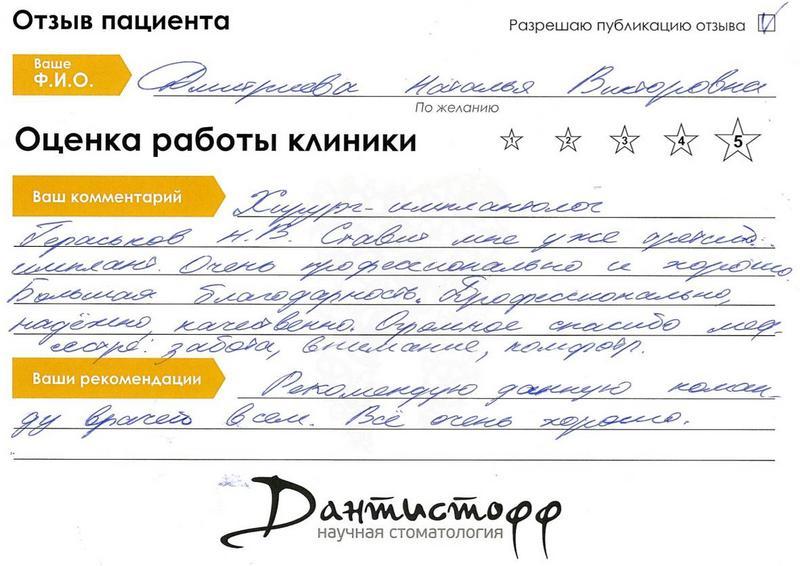 Отзыв пациента
Разрешаю публикацию отзыва
Ваше
Ф.И.О.
Дмитриева Наталья Викторовна
По желанию
Оценка работы клиники
1 2 3 4 5
Ваш комментарий
Хирург-имплантолог
Гераськов Н.В. Ставит мне уже третий
имплант. Очень профессионально и хорошо.
Большая благодарность. Профессионально,
надёжно, качественно. Огромное спасибо мед-
сестре: забота, внимание, комфорт.
Ваши рекомендации
Рекомендую данную коман-
ду врачей всем. Всё очень хорошо.
Дантистофф
научная стоматология